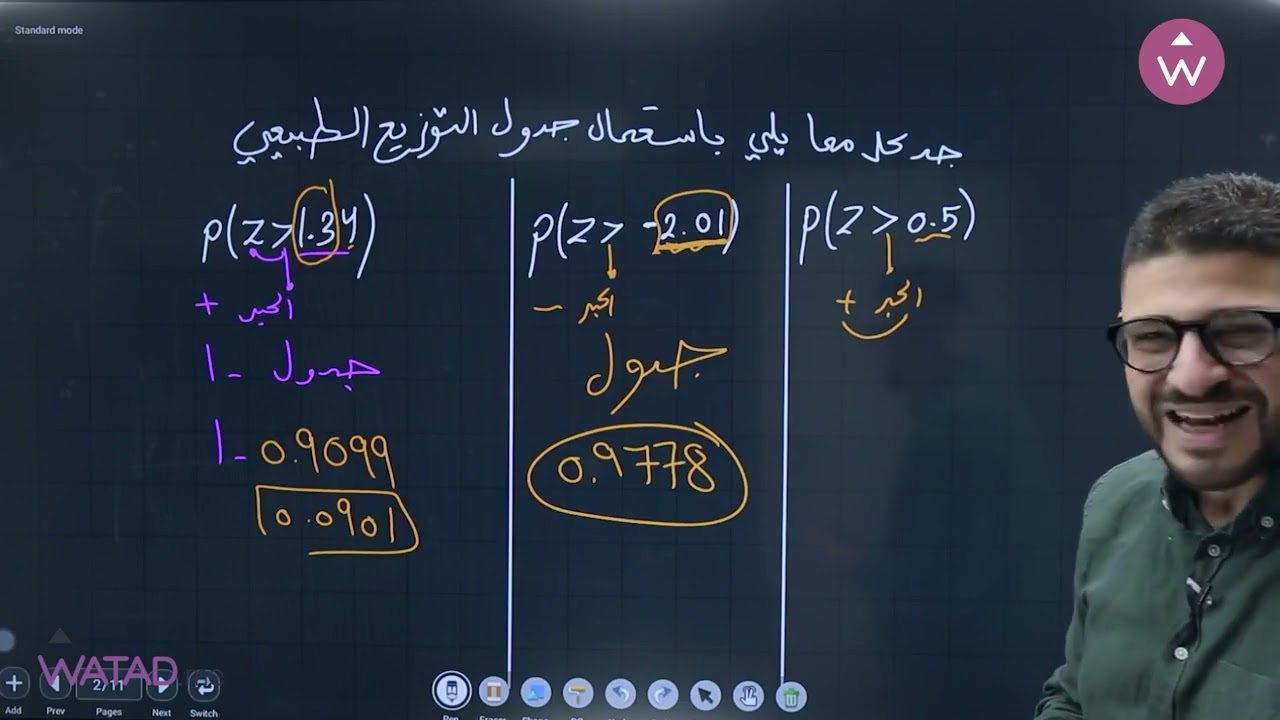 Standard mode
W
جد كل مما يلي باستعمال جدول التوزيع الطبيعي
p(Z > 0.5)
أكبر +
p(Z > -2.01)
أكبر -
جدول
0.9778
p(Z > 1.34)
أكبر +
1 - جدول
1 - 0.9099
0.0901
WATAD
2/11
Add Prev Pages Next Switch